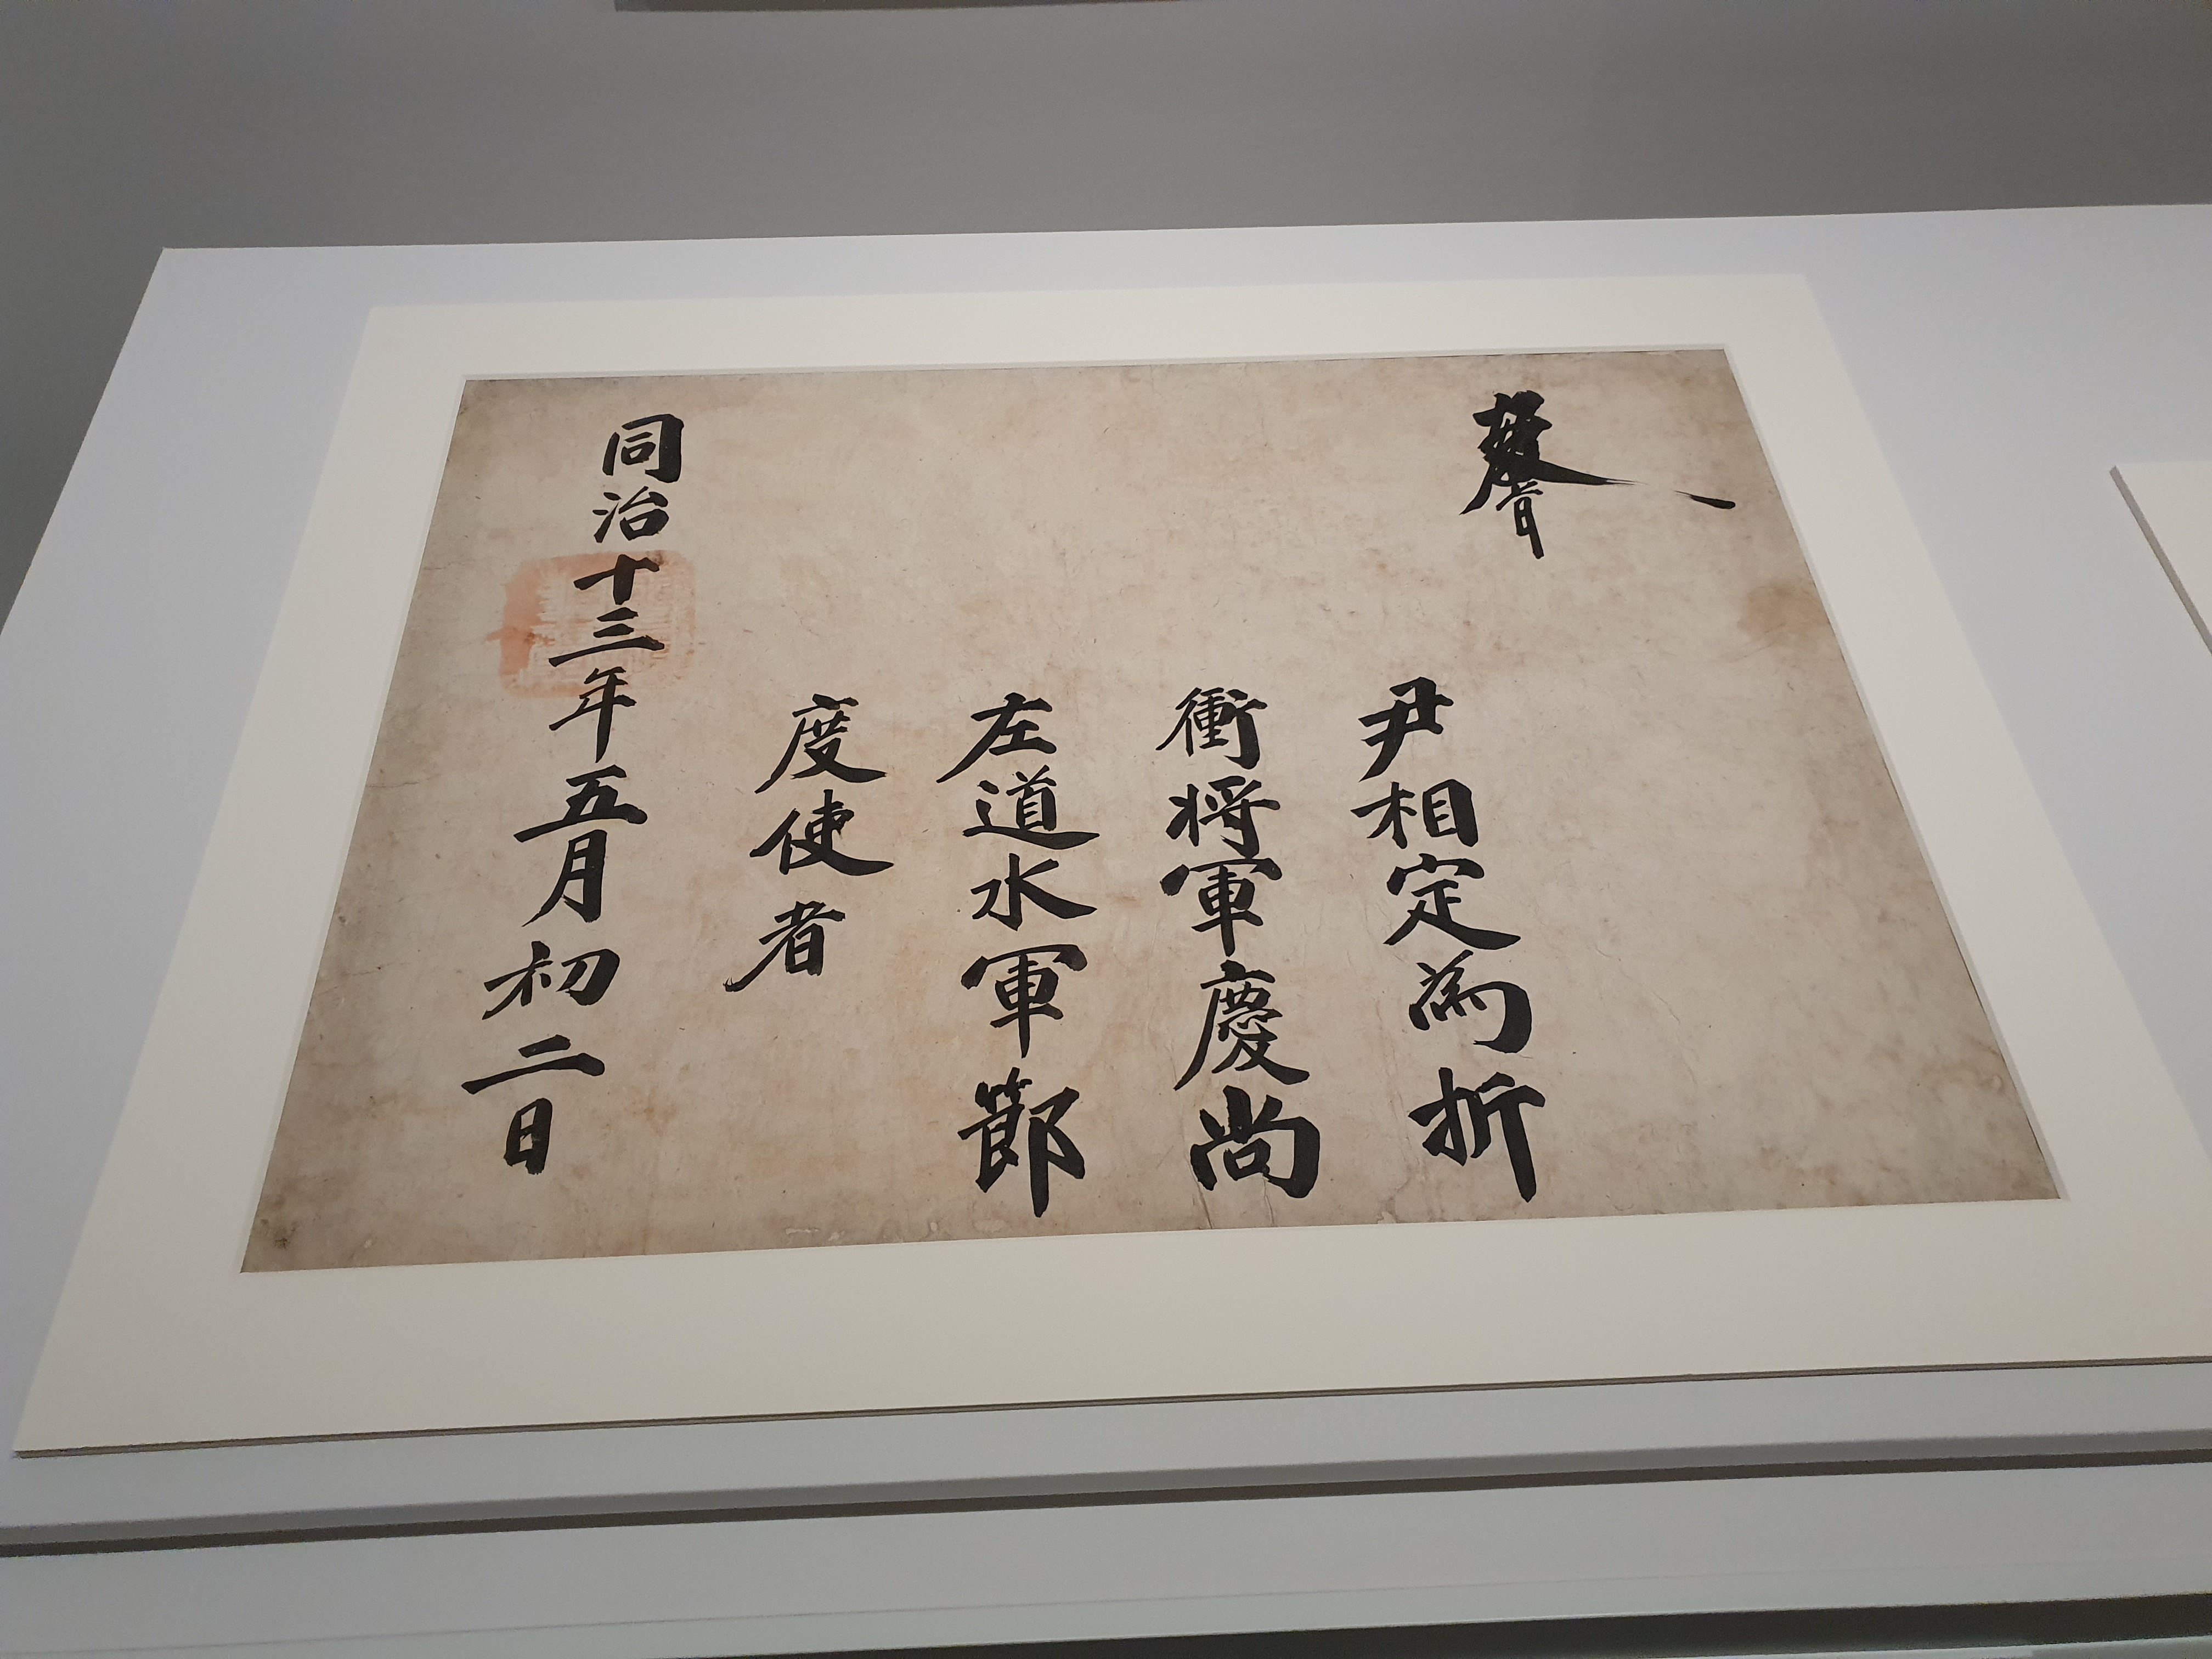 敎旨
尹相定為折
衝将軍慶尚
左道水軍節
度使者
同治十三年五月初二日